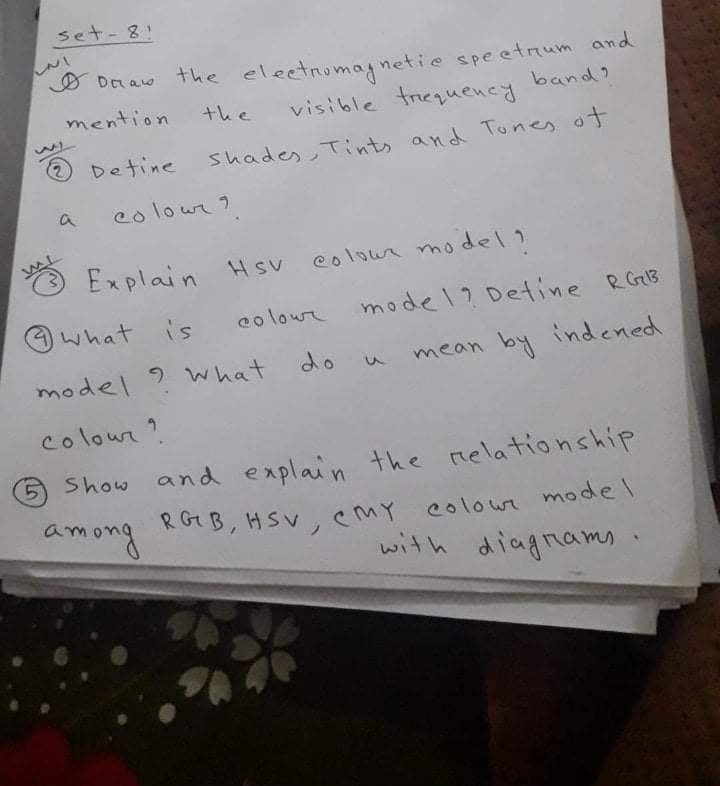 Set - 8:
① Draw the electromagnetic spectrum and
mention the visible frequency band?
② Define shades, Tints and Tones of
a colour?
③ Explain HSV colour model?
④ what is colour model? Define RGB
model? What do u mean by indexed
colour?
⑤ Show and explain the relationship
among RGB, HSV, CMY colour model
with diagrams.